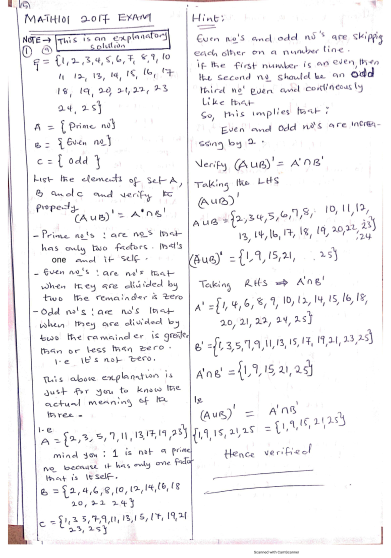 MATH101 2017 EXAM
NOTE → This is an explanatory
solution
① (a)
ξ = {1, 2, 3, 4, 5, 6, 7, 8, 9, 10
11 12, 13, 14, 15, 16, 17
18, 19, 20, 21, 22, 23
24, 25}
A = {Prime no}
B = {Even no}
C = {odd}
List the elements of set A,
B and C and verify the
property
(A∪B)' = A'∩B'
- Prime no's : are no's that
has only two factors. that's
one and it self.
- Even no's : are no's that
when they are divided by
two the remainder is zero
- Odd no's : are no's that
when they are divided by
two the remainder is greater
than or less than zero.
i.e it's not zero.
This above explanation is
just for you to know the
actual meaning of the
three.
i.e
A = {2, 3, 5, 7, 11, 13, 17, 19, 23}
mind you : 1 is not a prime
no because it has only one factor
that is itself.
B = {2, 4, 6, 8, 10, 12, 14, 16, 18
20, 22 24}
C = {1, 3 5, 7, 9, 11, 13, 15, 17, 19, 21
23, 25}
Hint:
Even no's and odd no's are skipping
each other on a number line.
if the first number is an even, then
the second no should be an odd
third no even and continously
Like that
So, this implies that;
Even and odd no's are increa-
ssing by 2.
Verify (A∪B)' = A'∩B'
Taking the LHS
(A∪B)'
A∪B = {2, 3 4, 5, 6, 7, 8, 10, 11, 12,
13, 14, 16, 17, 18, 19, 20, 22, 23}
, 24
(A∪B)' = {1, 9, 15, 21, 25}
Taking RHS ⇒ A'∩B'
A' = {1, 4, 6, 8, 9, 10, 12, 14, 15, 16, 18,
20, 21, 22, 24, 25}
B' = {1, 3, 5, 7, 9, 11, 13, 15, 17, 19, 21, 23, 25}
A'∩B' = {1, 9, 15, 21, 25}
(A∪B)' = A'∩B'
{1, 9, 15, 21, 25 = {1, 9, 15, 21, 25}
Hence verified
Scanned with CamScanner